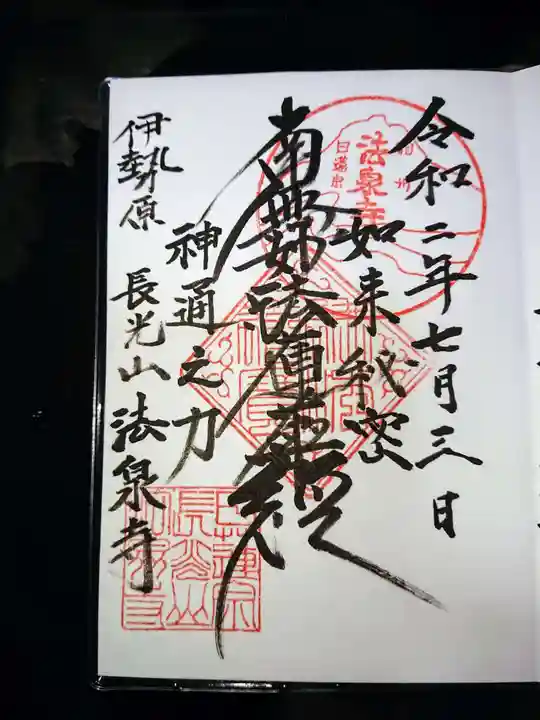 令和二年七月三日
如来秘密
南無妙法蓮華経
神通之力
伊勢原 長光山 法泉寺
相州
法泉寺
日蓮宗